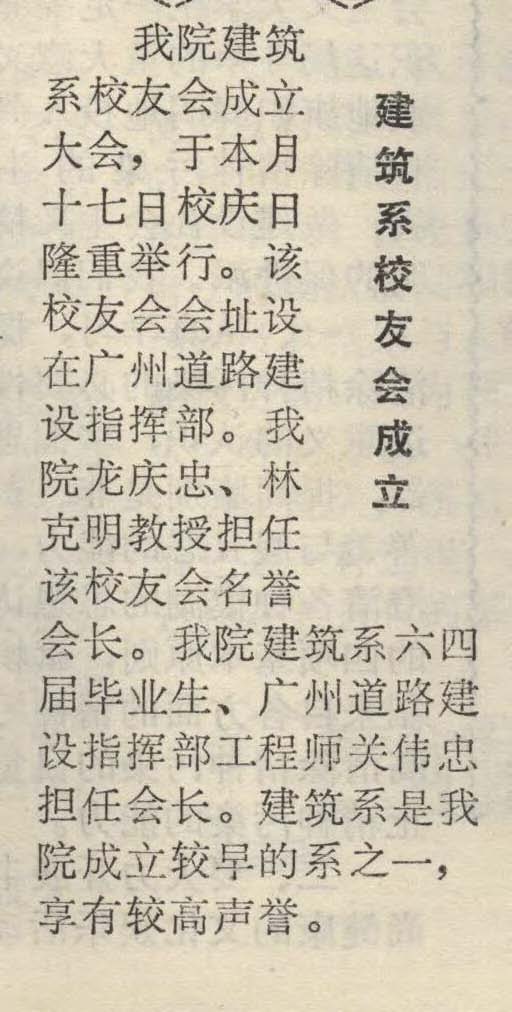 建筑系校友会成立
我院建筑
系校友会成立
大会，于本月
十七日校庆日
隆重举行。该
校友会会址设
在广州道路建
设指挥部。我
院龙庆忠、林
克明教授担任
该校友会名誉
会长。我院建筑系六四
届毕业生、广州道路建
设指挥部工程师关伟忠
担任会长。建筑系是我
院成立较早的系之一，
享有较高声誉。